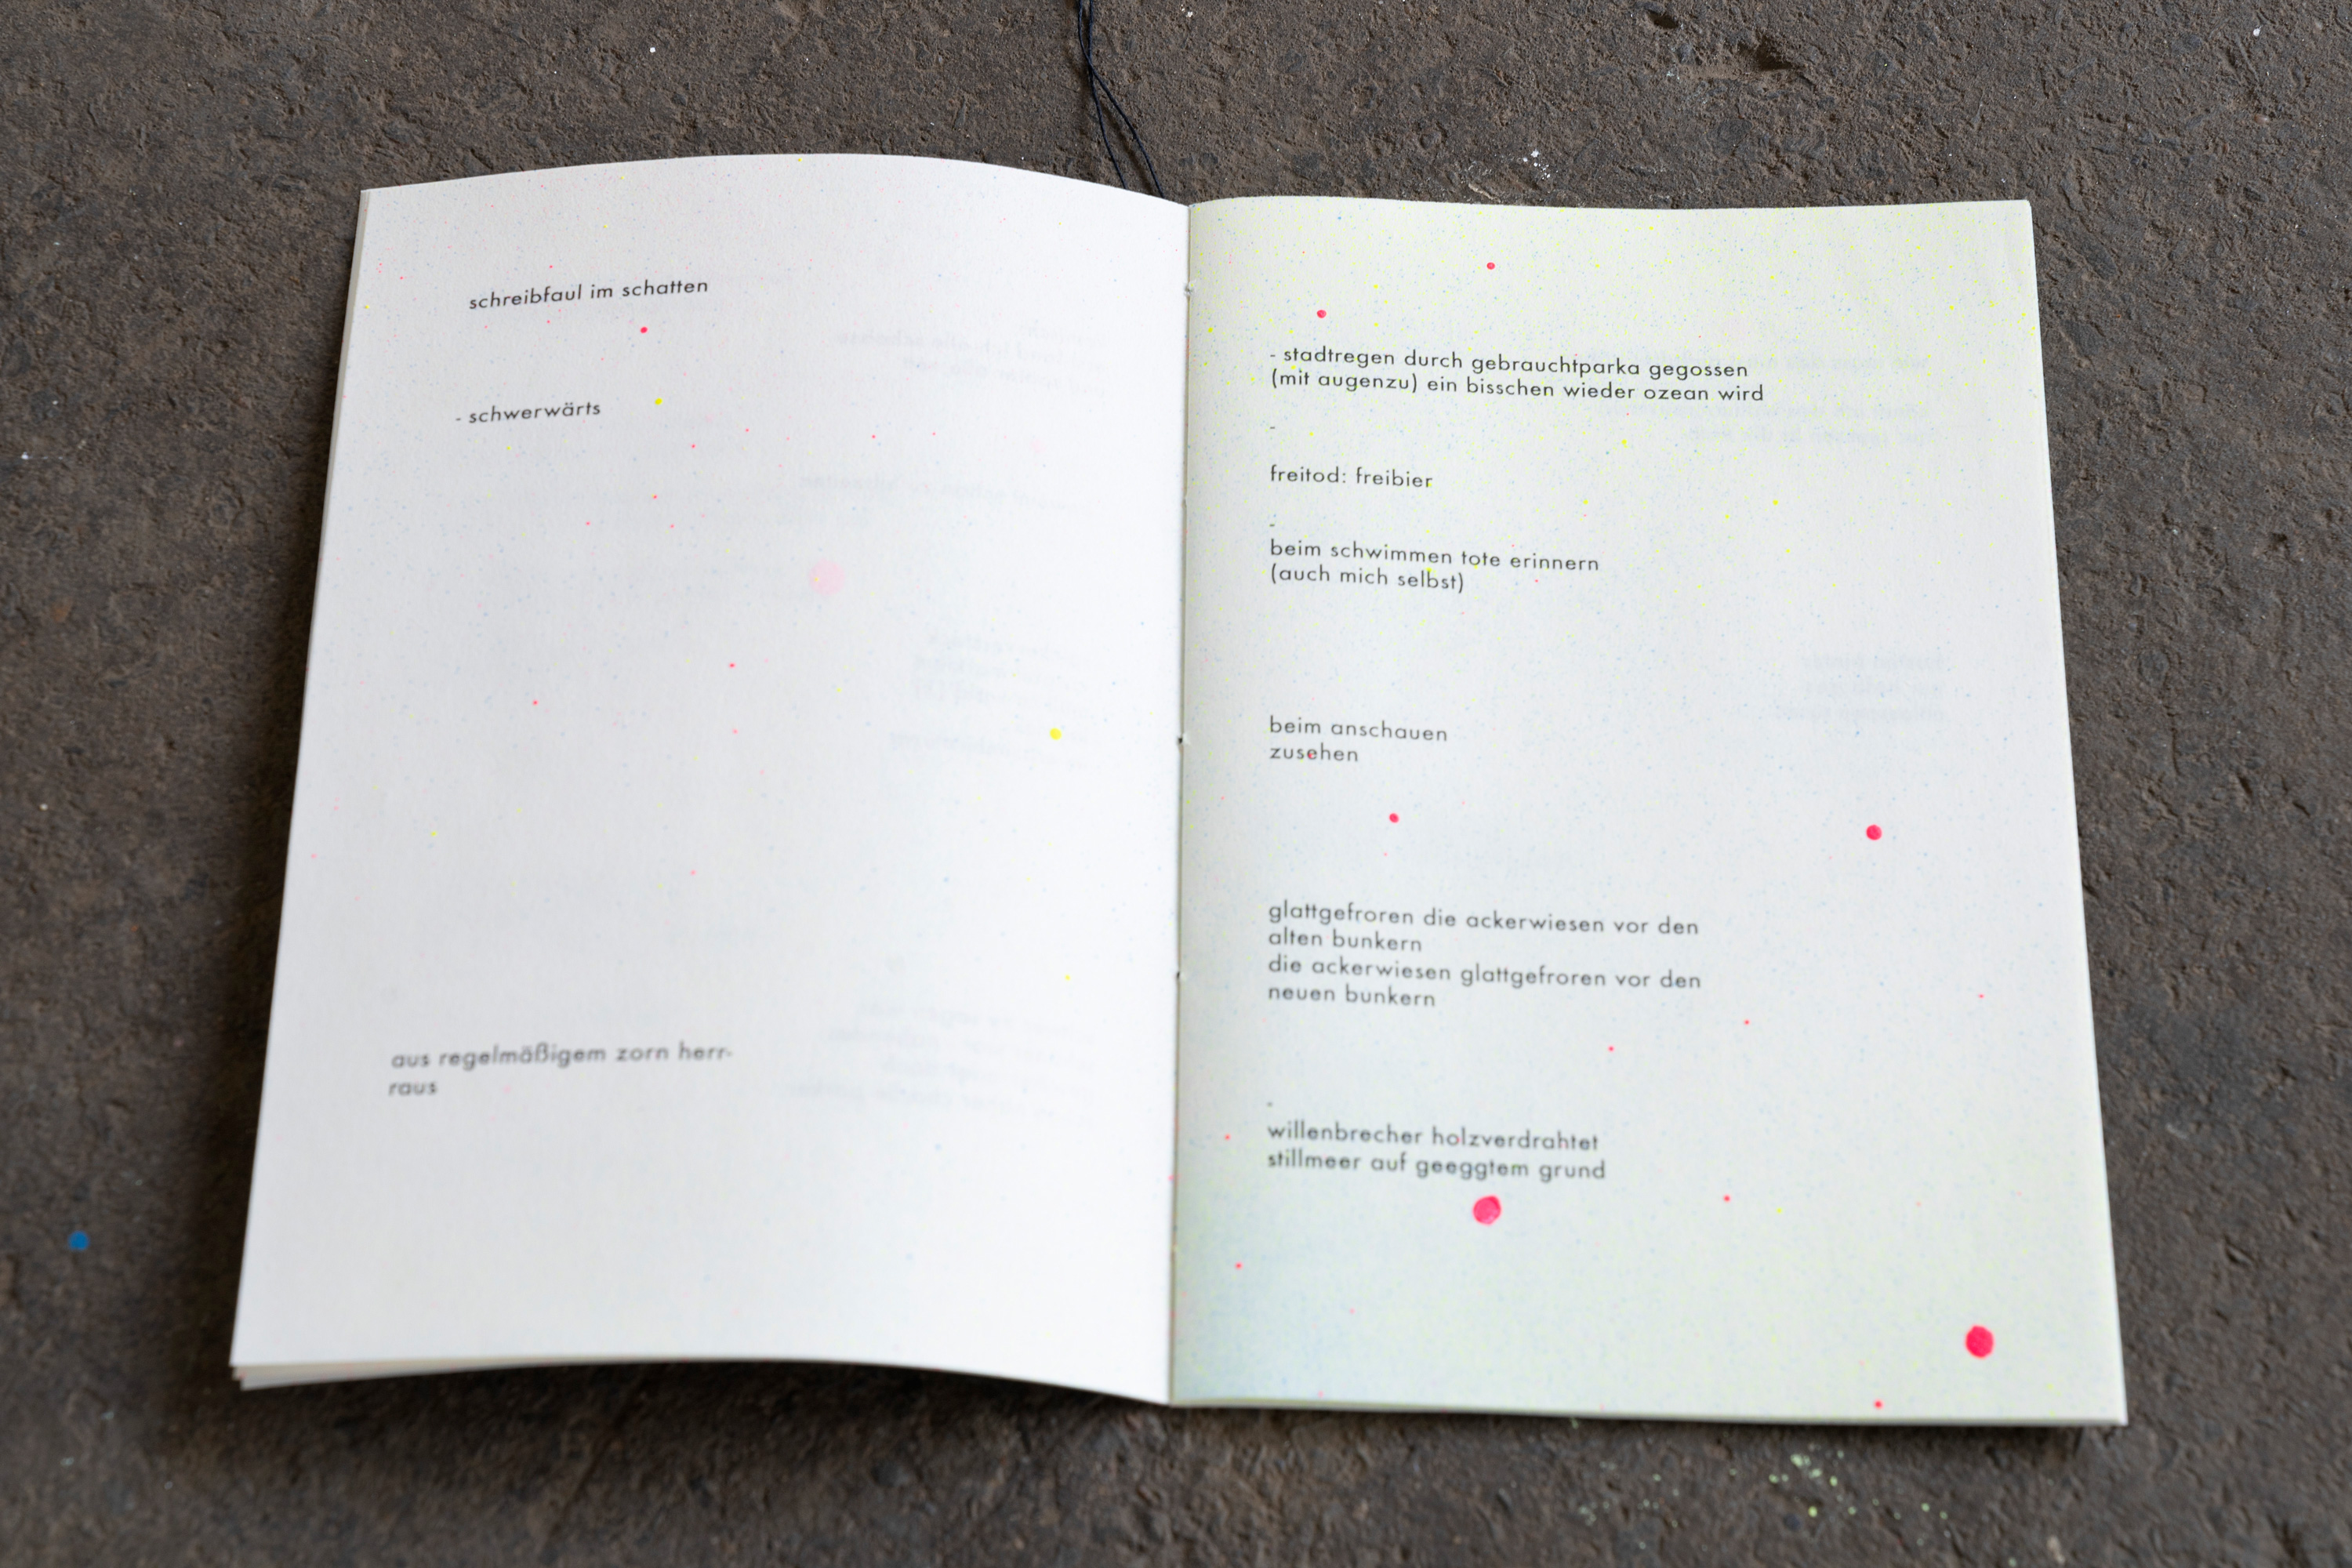 schreibfaul im schatten
- schwerwärts
aus regelmäßigem zorn herr-
raus
- stadtregen durch gebrauchtparka gegossen
(mit augenzu) ein bisschen wieder ozean wird
-
freitod: freibier
-
beim schwimmen tote erinnern
(auch mich selbst)
beim anschauen
zusehen
glattgefroren die ackerwiesen vor den
alten bunkern
die ackerwiesen glattgefroren vor den
neuen bunkern
-
willenbrecher holzverdrahtet
stillmeer auf geeggtem grund